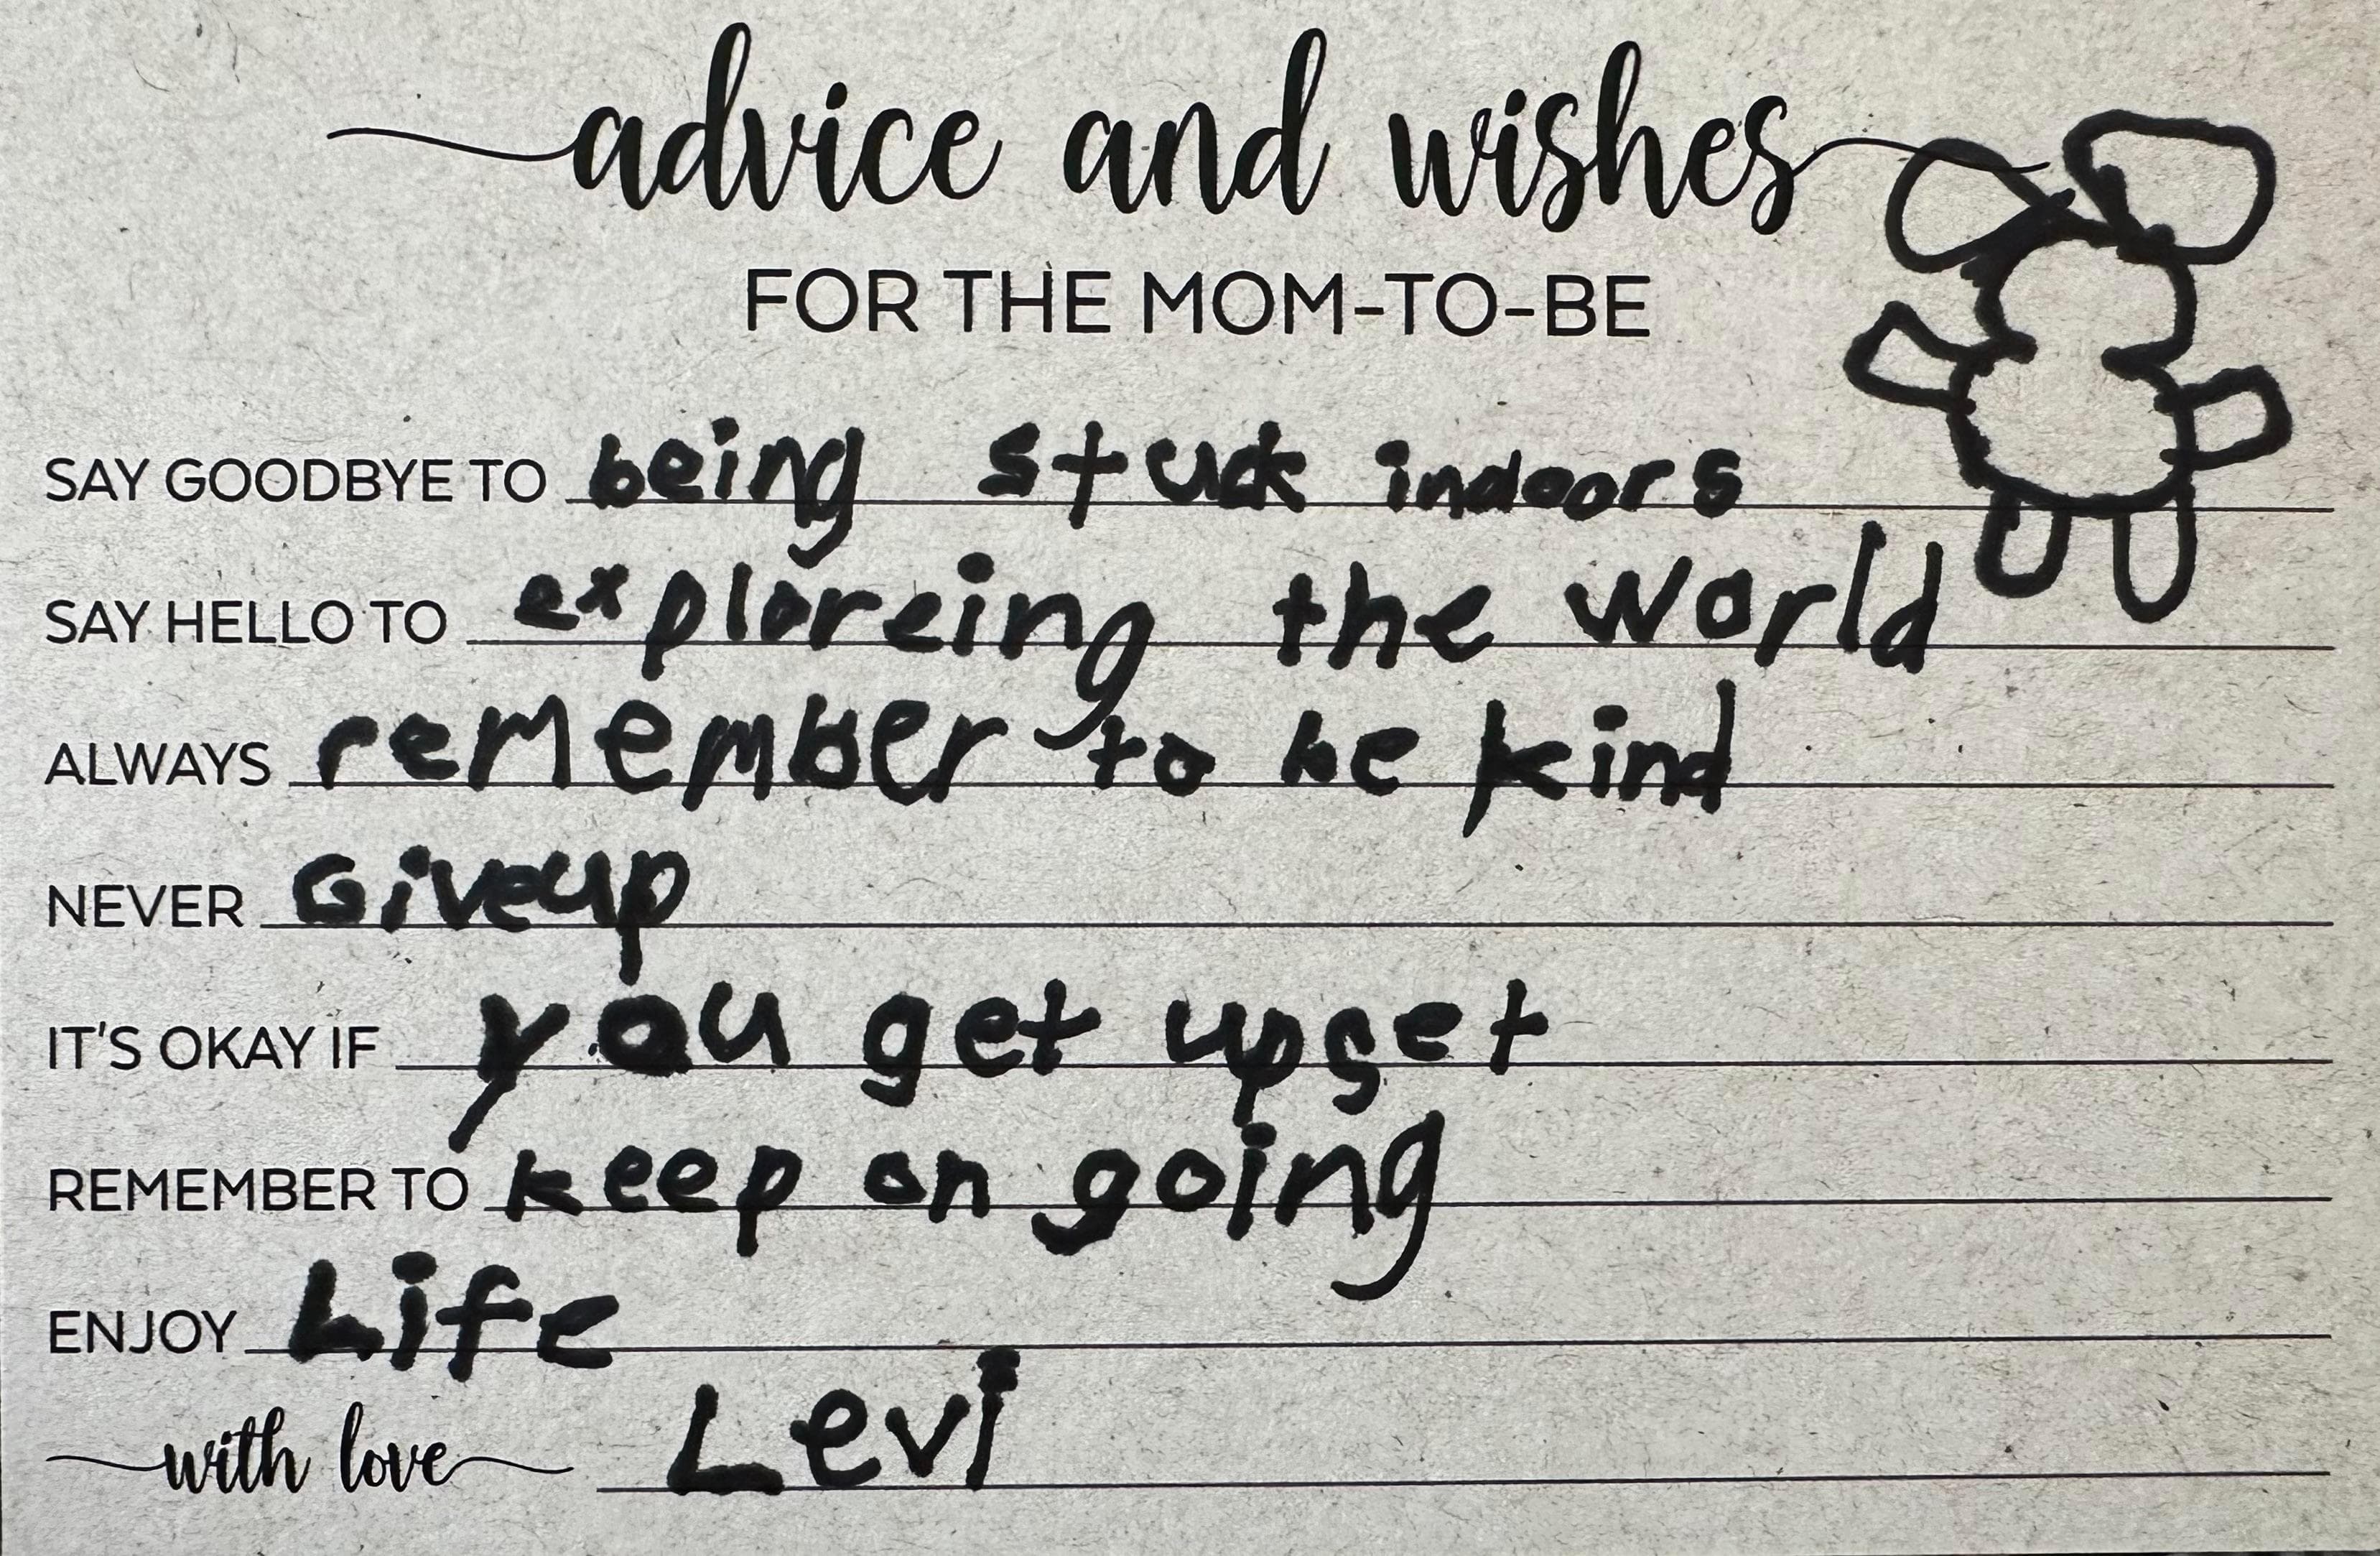 advice and wishes
FOR THE MOM-TO-BE
SAY GOODBYE TO being stuck indoors
SAY HELLO TO exploreing the world
ALWAYS remember to be kind
NEVER Giveup
IT'S OKAY IF you get upset
REMEMBER TO keep on going
ENJOY Life
with love Levi